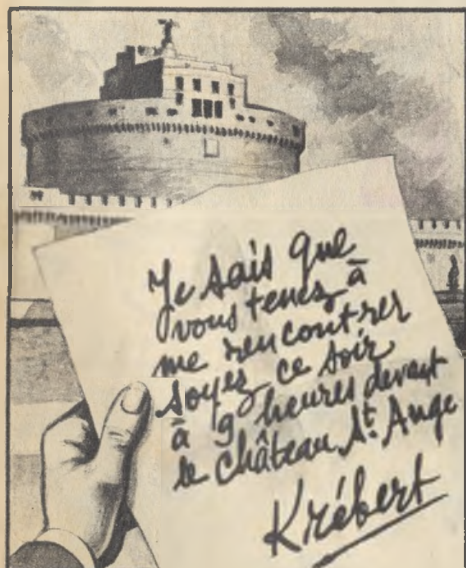 Je sais que
vous tenez à
me rencontrer
soyez ce soir
à 9 heures devant
le château St. Ange
Krébert